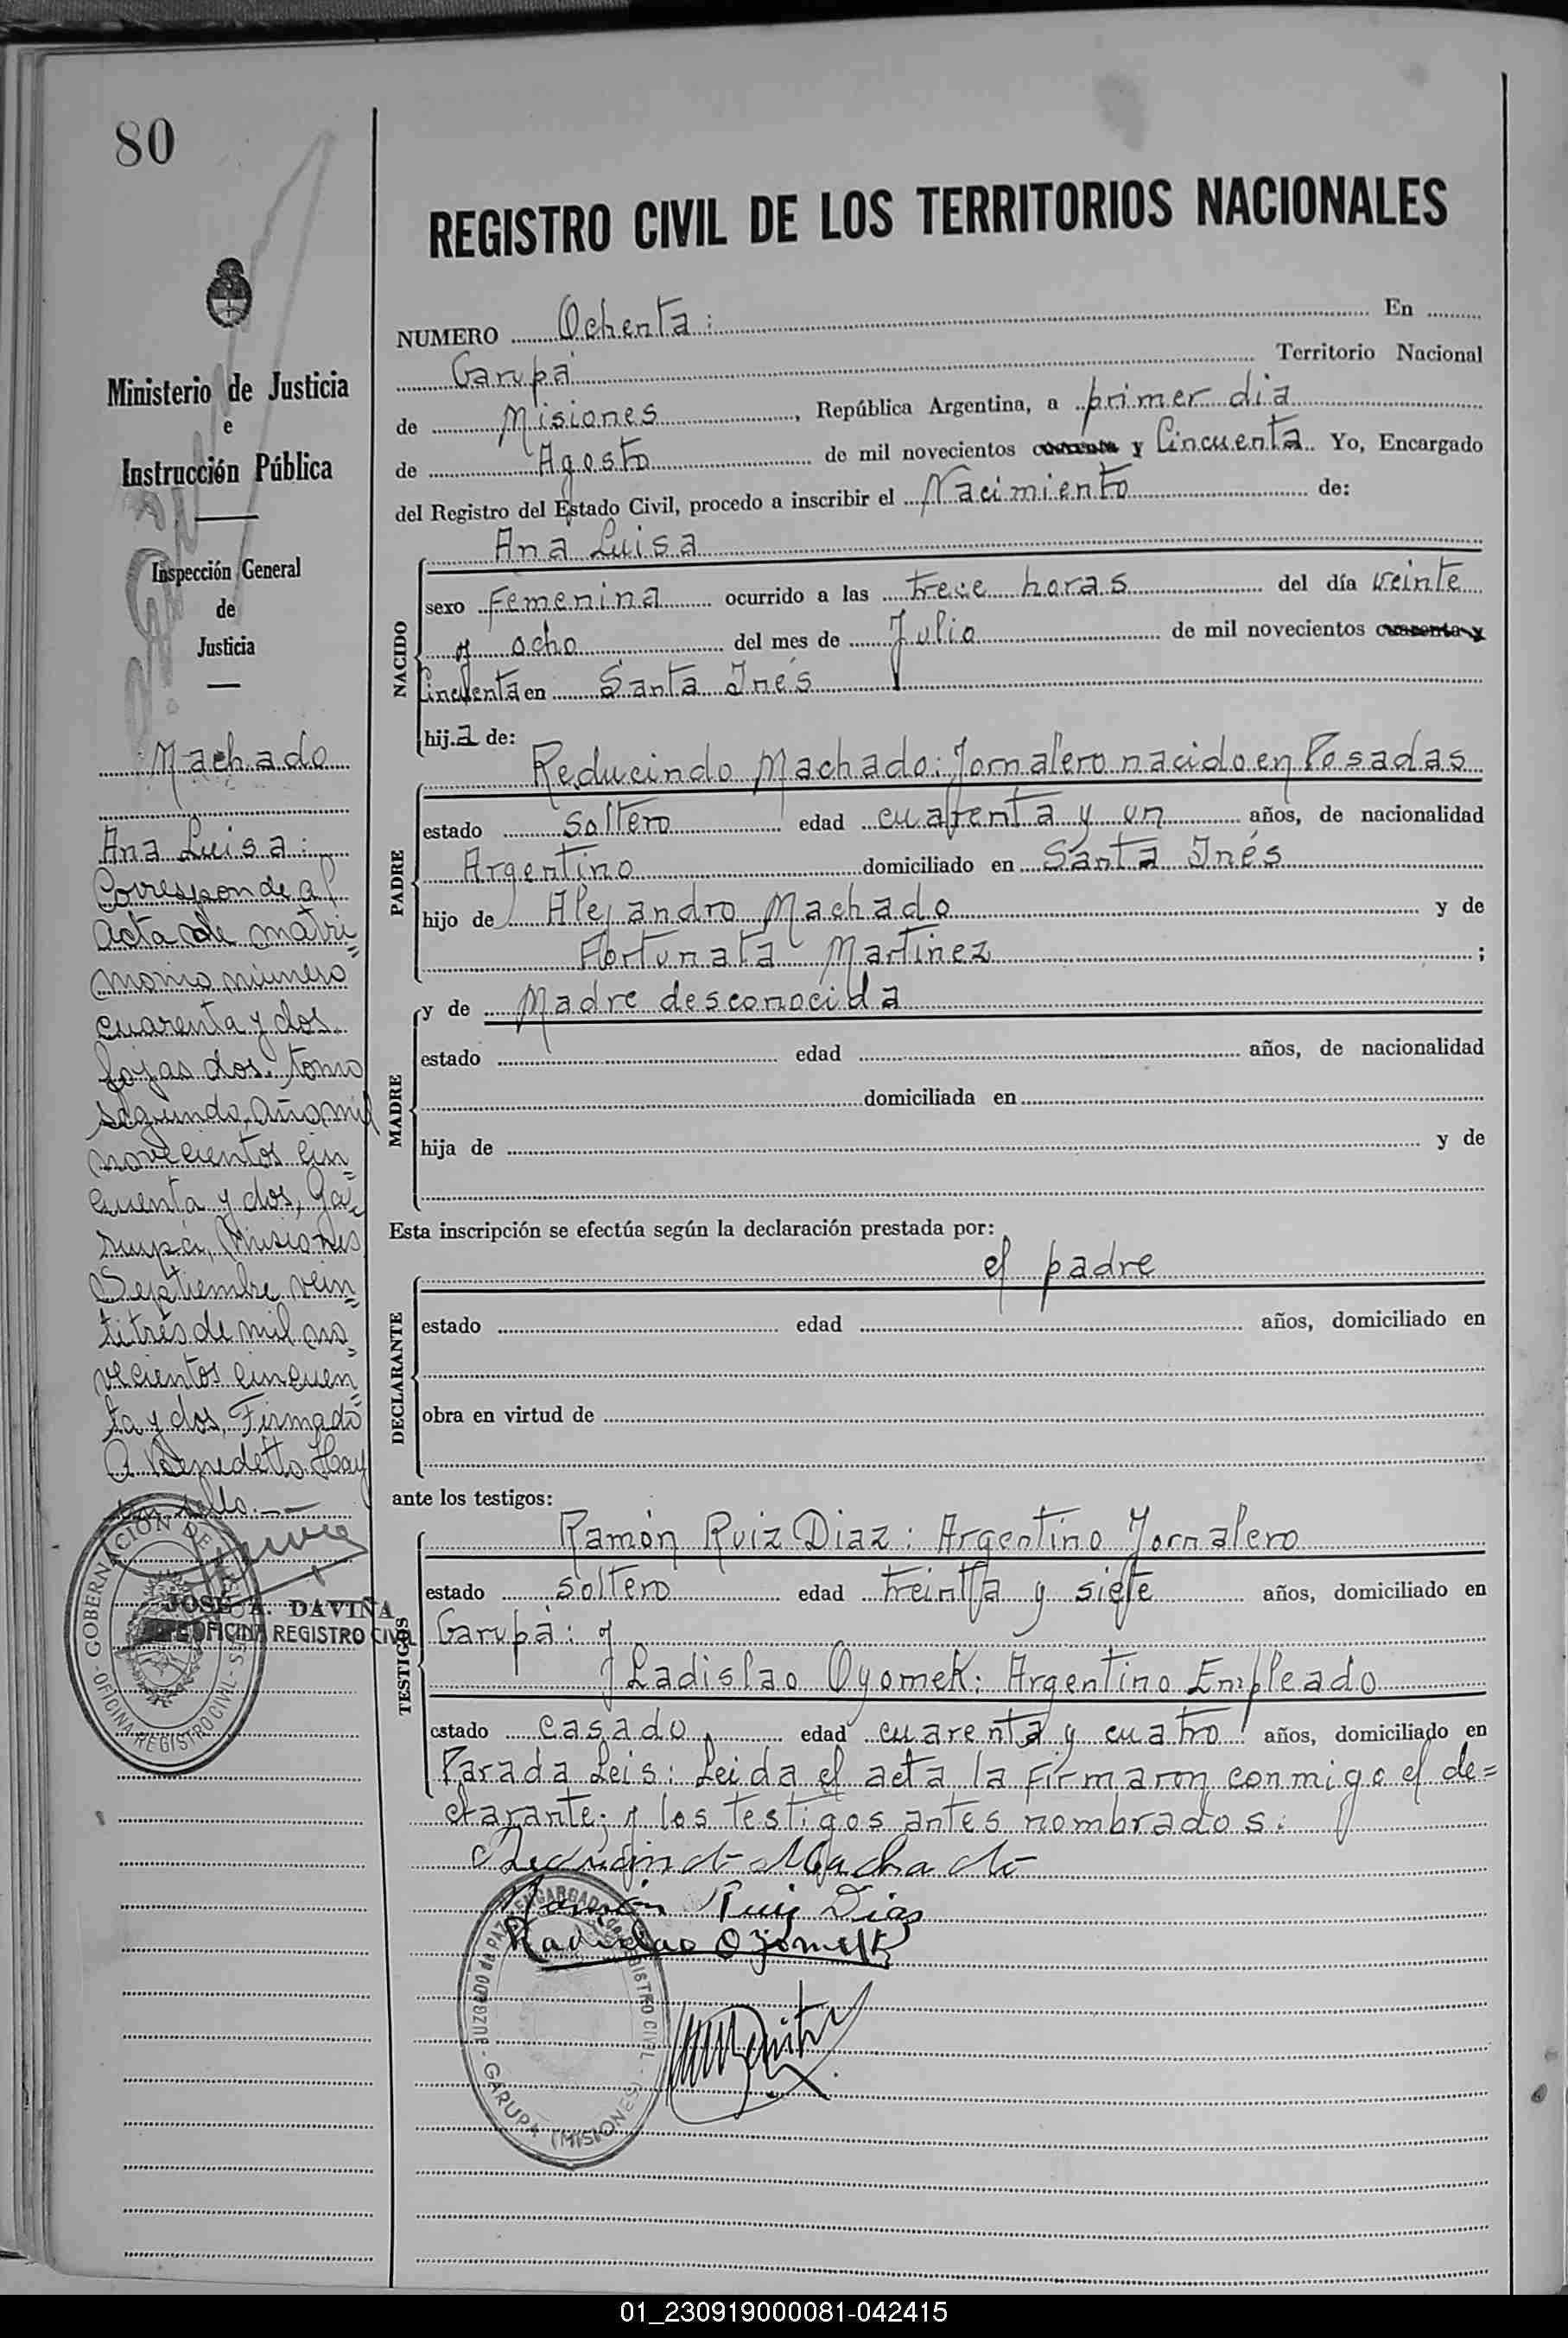 80
REGISTRO CIVIL DE LOS TERRITORIOS NACIONALES
Ministerio de Justicia
e
Instrucción Pública
Inspección General
de
Justicia
Machado
Ana Luisa:
Corresponde al
acta de matri=
monio número
cuarenta y dos
fojas dos. tomo
segundo, año mil
novecientos cin=
cuenta y dos, Ga=
rupá, Misiones
Septiembre vein=
titrés de mil no=
vecientos cincuen=
ta y dos, Firmado
Benedetto. Hay
un sello.
GOBERNACIÓN DE MISIONES
OFICINA REGISTRO CIVIL
JOSÉ A. DAVIÑA
JEFE OFICINA REGISTRO CIVIL
NUMERO Ochenta: En
Garupá Territorio Nacional
de Misiones, República Argentina, a primer dia
de Agosto de mil novecientos cuarenta y Cincuenta. Yo, Encargado
del Registro del Estado Civil, procedo a inscribir el Nacimiento de:
NACIDO
Ana Luisa
sexo Femenina ocurrido a las trece horas del día veinte
y ocho del mes de Julio de mil novecientos cuarenta y
Cincuenta en Santa Inés
hija de:
PADRE
Reducindo Machado: Jornalero nacido en Posadas
estado Soltero edad cuarenta y un años, de nacionalidad
Argentino domiciliado en Santa Inés
hijo de Alejandro Machado y de
Fortunata Martinez ;
MADRE
y de Madre desconocida
estado edad años, de nacionalidad
domiciliada en
hija de y de
Esta inscripción se efectúa según la declaración prestada por:
DECLARANTE
el padre
estado edad años, domiciliado en
obra en virtud de
ante los testigos:
TESTIGOS
Ramón Ruiz Diaz: Argentino Jornalero
estado soltero edad treintta y siete años, domiciliado en
Garupá: y
Ladislao Oyomek: Argentino Empleado
estado casado edad cuarenta y cuatro años, domiciliado en
Parada Leis: Leida el acta la Firmaron conmigo el de=
clarante; y los testigos antes nombrados:
Reducindo Machado
Ramón Ruiz Dias
Ladislao Ojomek
JUZGADO de PAZ - ENCARGADO del REGISTRO CIVIL
GARUPA (MISIONES)
01_230919000081-042415